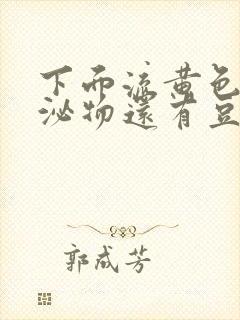 下面流黄色
泌物还有豆
郭成芳